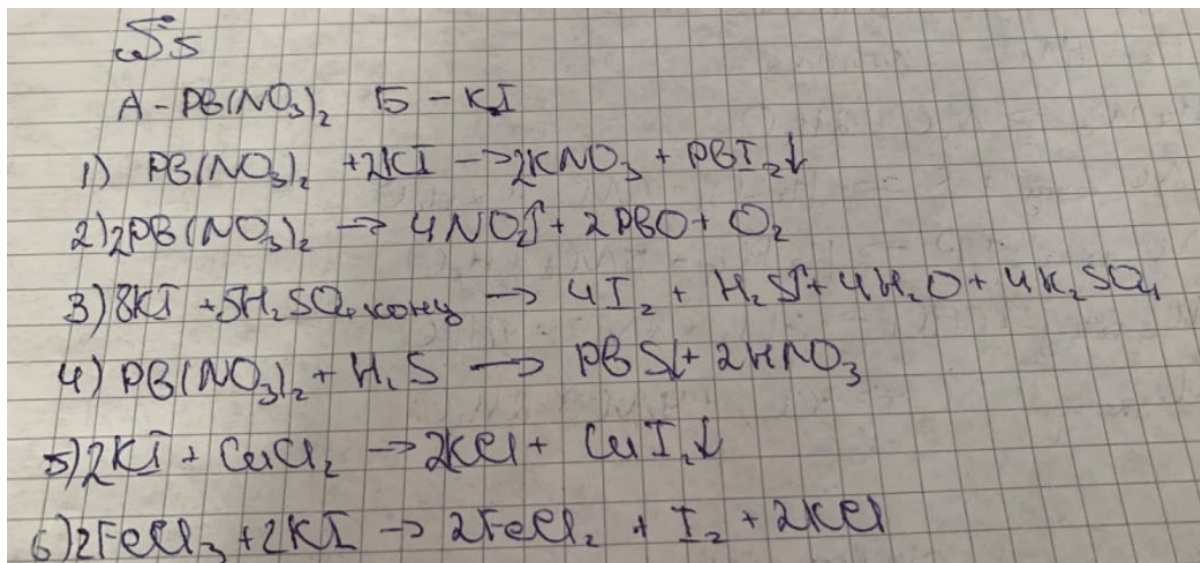 №5
А - PB(NO₃)₂ Б - KI
1) PB(NO₃)₂ + 2KI → 2KNO₃ + PBI₂↓
2) 2PB(NO₃)₂ → 4NO₂↑ + 2PBO + O₂
3) 8KI + 5H₂SO₄ конц → 4I₂ + H₂S↑ + 4H₂O + 4K₂SO₄
4) PB(NO₃)₂ + H₂S → PBS↓ + 2HNO₃
5) 2KI + CuCl₂ → 2KCl + CuI₂↓
6) 2FeCl₃ + 2KI → 2FeCl₂ + I₂ + 2KCl